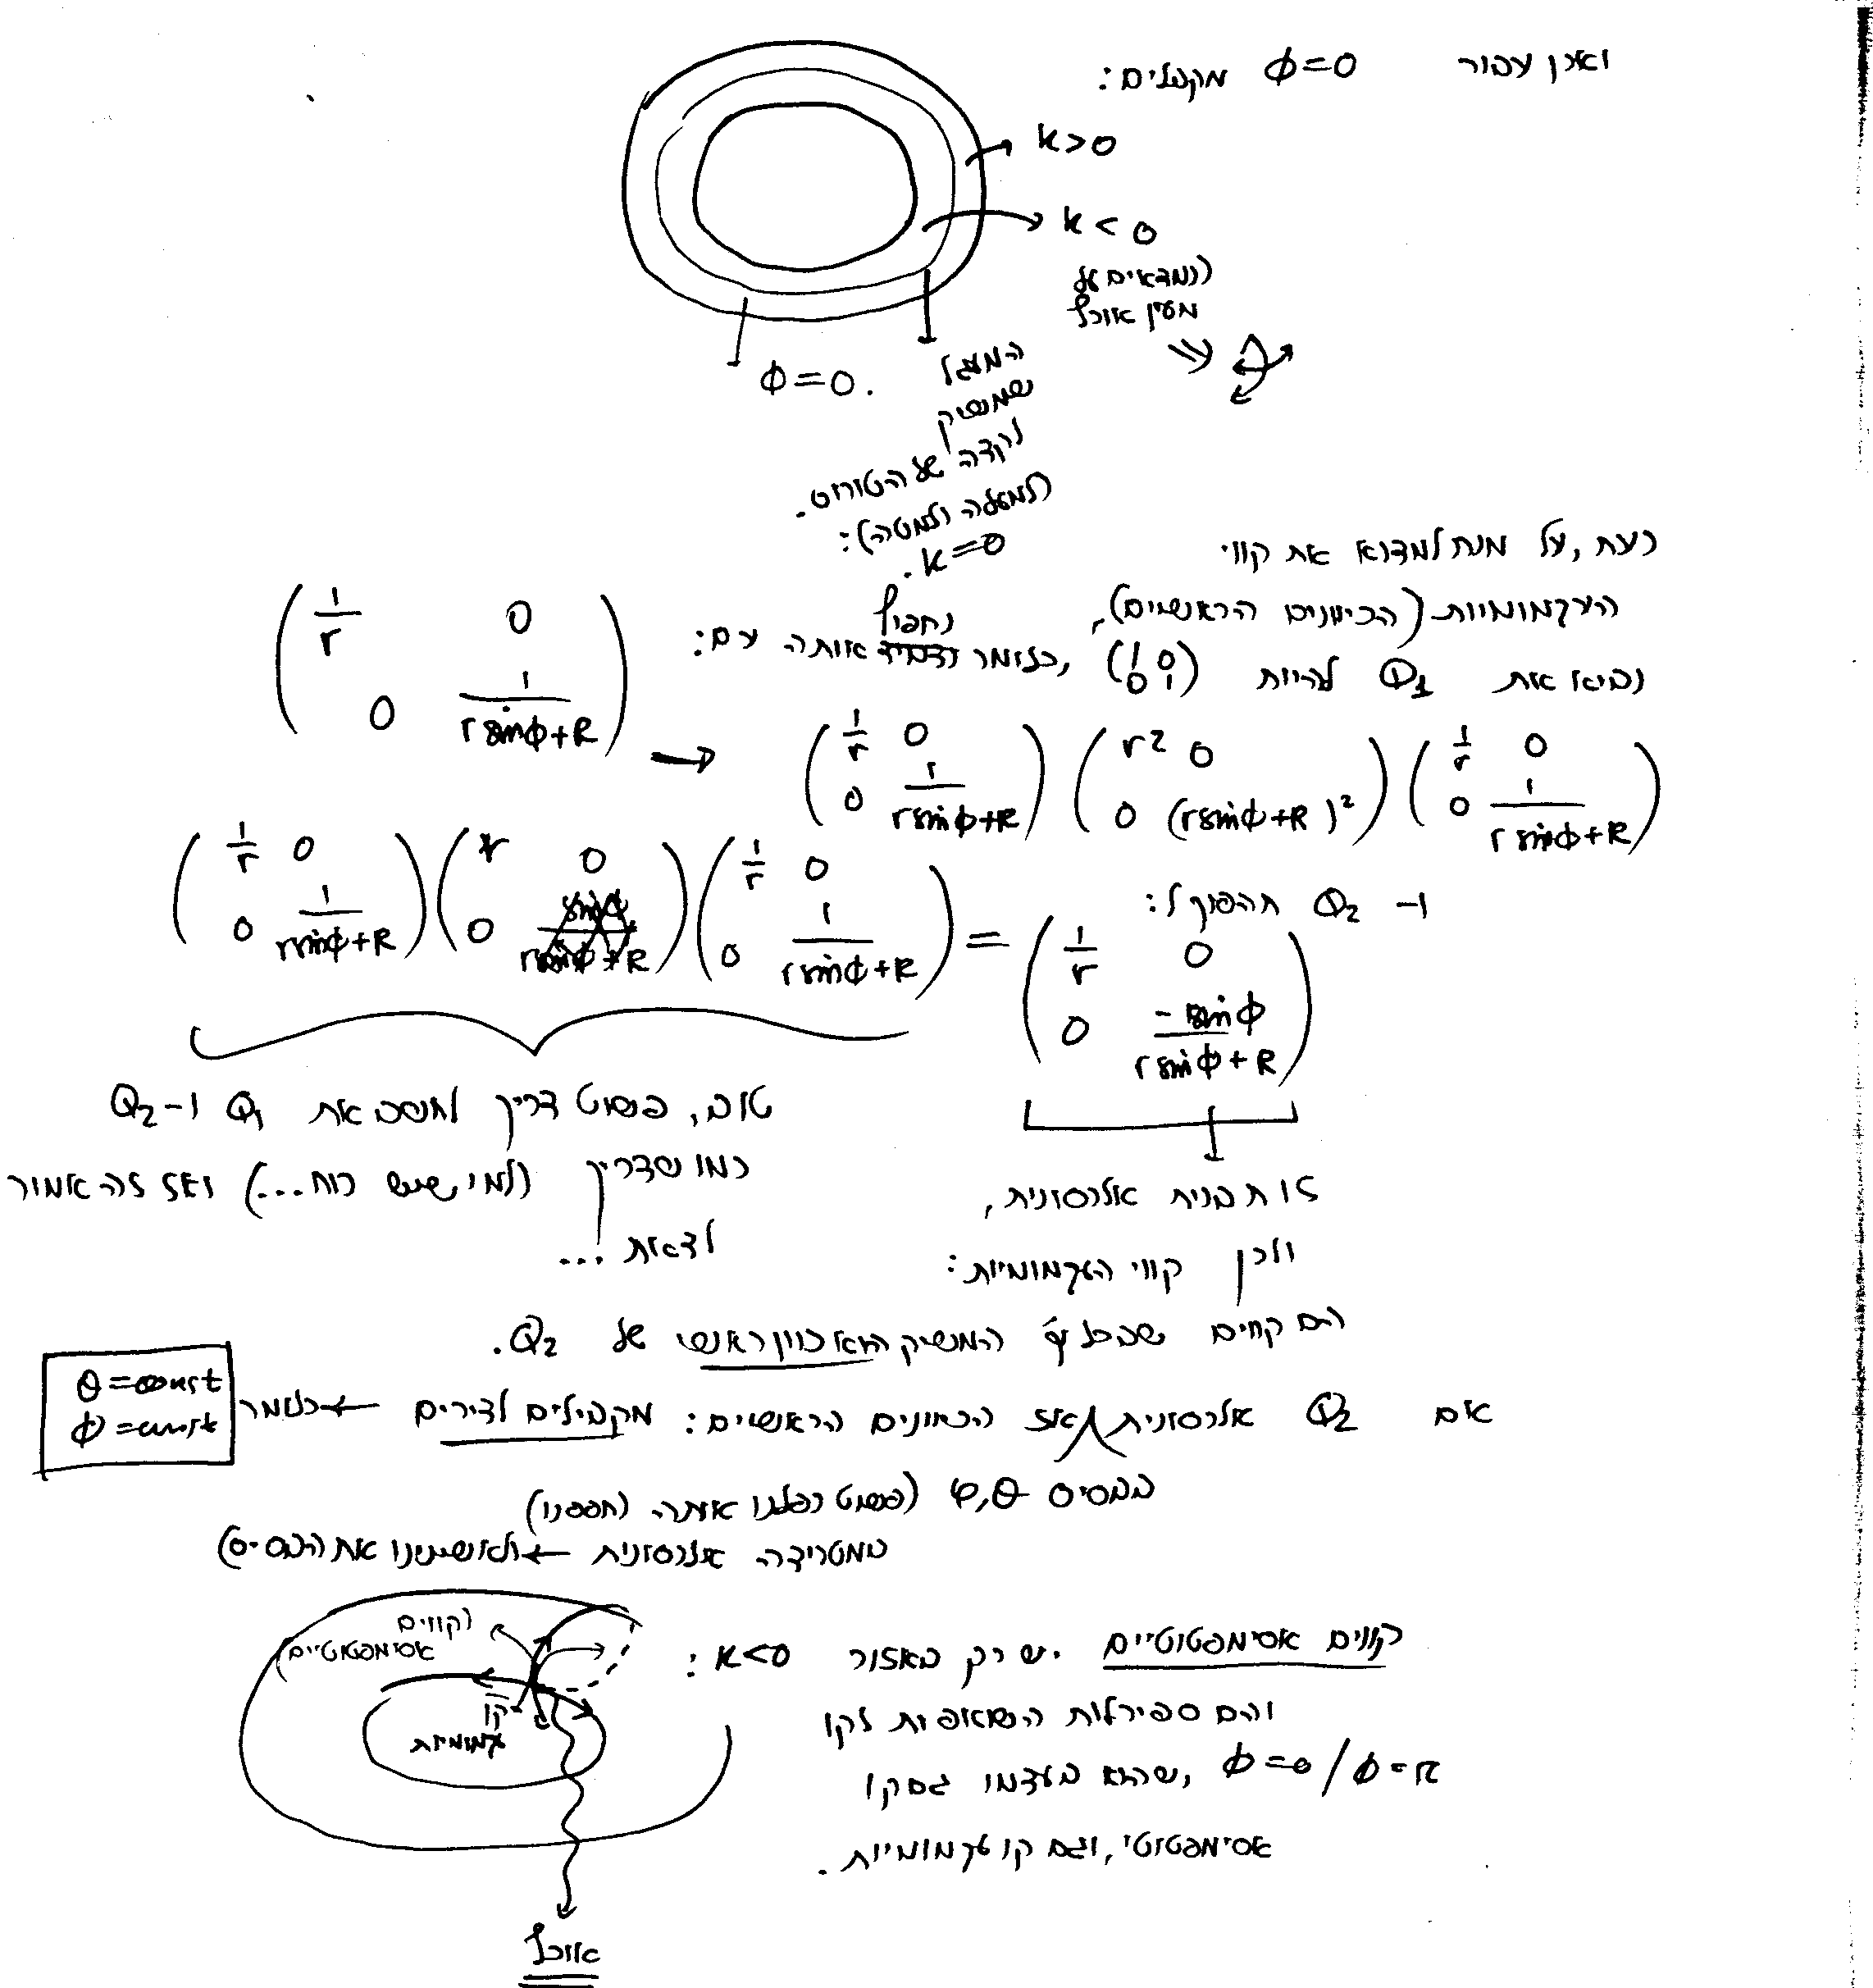 ואכן עבור φ=0 מקבלים:
k>0
k<0
(נמצאים על
מעין אוכף
φ=0.
המעגל
שמשיק
לקדה של הטורוס.
(למעלה ולמטה):
k=0.
כעת, על מנת למצוא את קווי
העקמומיות (הכיוונים הראשיים),
נביא את Q1 להיות (1 0 0 1), כלומר נחפוף אותה עם:
(1/r 0 0 1/(r sinφ+R))
→ (1/r 0 0 1/(r sinφ+R)) (r² 0 0 (r sinφ+R)²) (1/r 0 0 1/(r sinφ+R))
ו- Q2 תהפוך ל:
(1/r 0 0 1/(r sinφ+R)) (r 0 0) (1/r 0 0 1/(r sinφ+R)) = (1/r 0 0 -sinφ/(r sinφ+R))
טוב, פשוט צריך לחשב את Q1 ו-Q2
כמו שצריך (למי שיש כוח...) ואז זה אמור
לצאת ...
זו תבנית אלכסונית,
ולכן קווי העקמומיות:
הם קווים שבכל נק' המשיק הוא כוון ראשי של Q2.
אם Q2 אלכסונית אז הכוונים הראשיים: מקבילים לצירים ← כלומר
θ=const
φ=const
בבסיס φ,θ (פשוט כפלנו אותה (חפפנו)
במטריצה אלכסונית ← ולא שינינו את הבסיס)
קווים אסימפטוטיים יש רק באזור k<0:
והם ספירלות השואפות לקו
φ=0/φ=π, שהוא בעצמו גם קו
אסימפטוטי, וגם קו עקמומיות.
(קווים
אסימפטוטיים)
קו
עקמומיות
אוכף